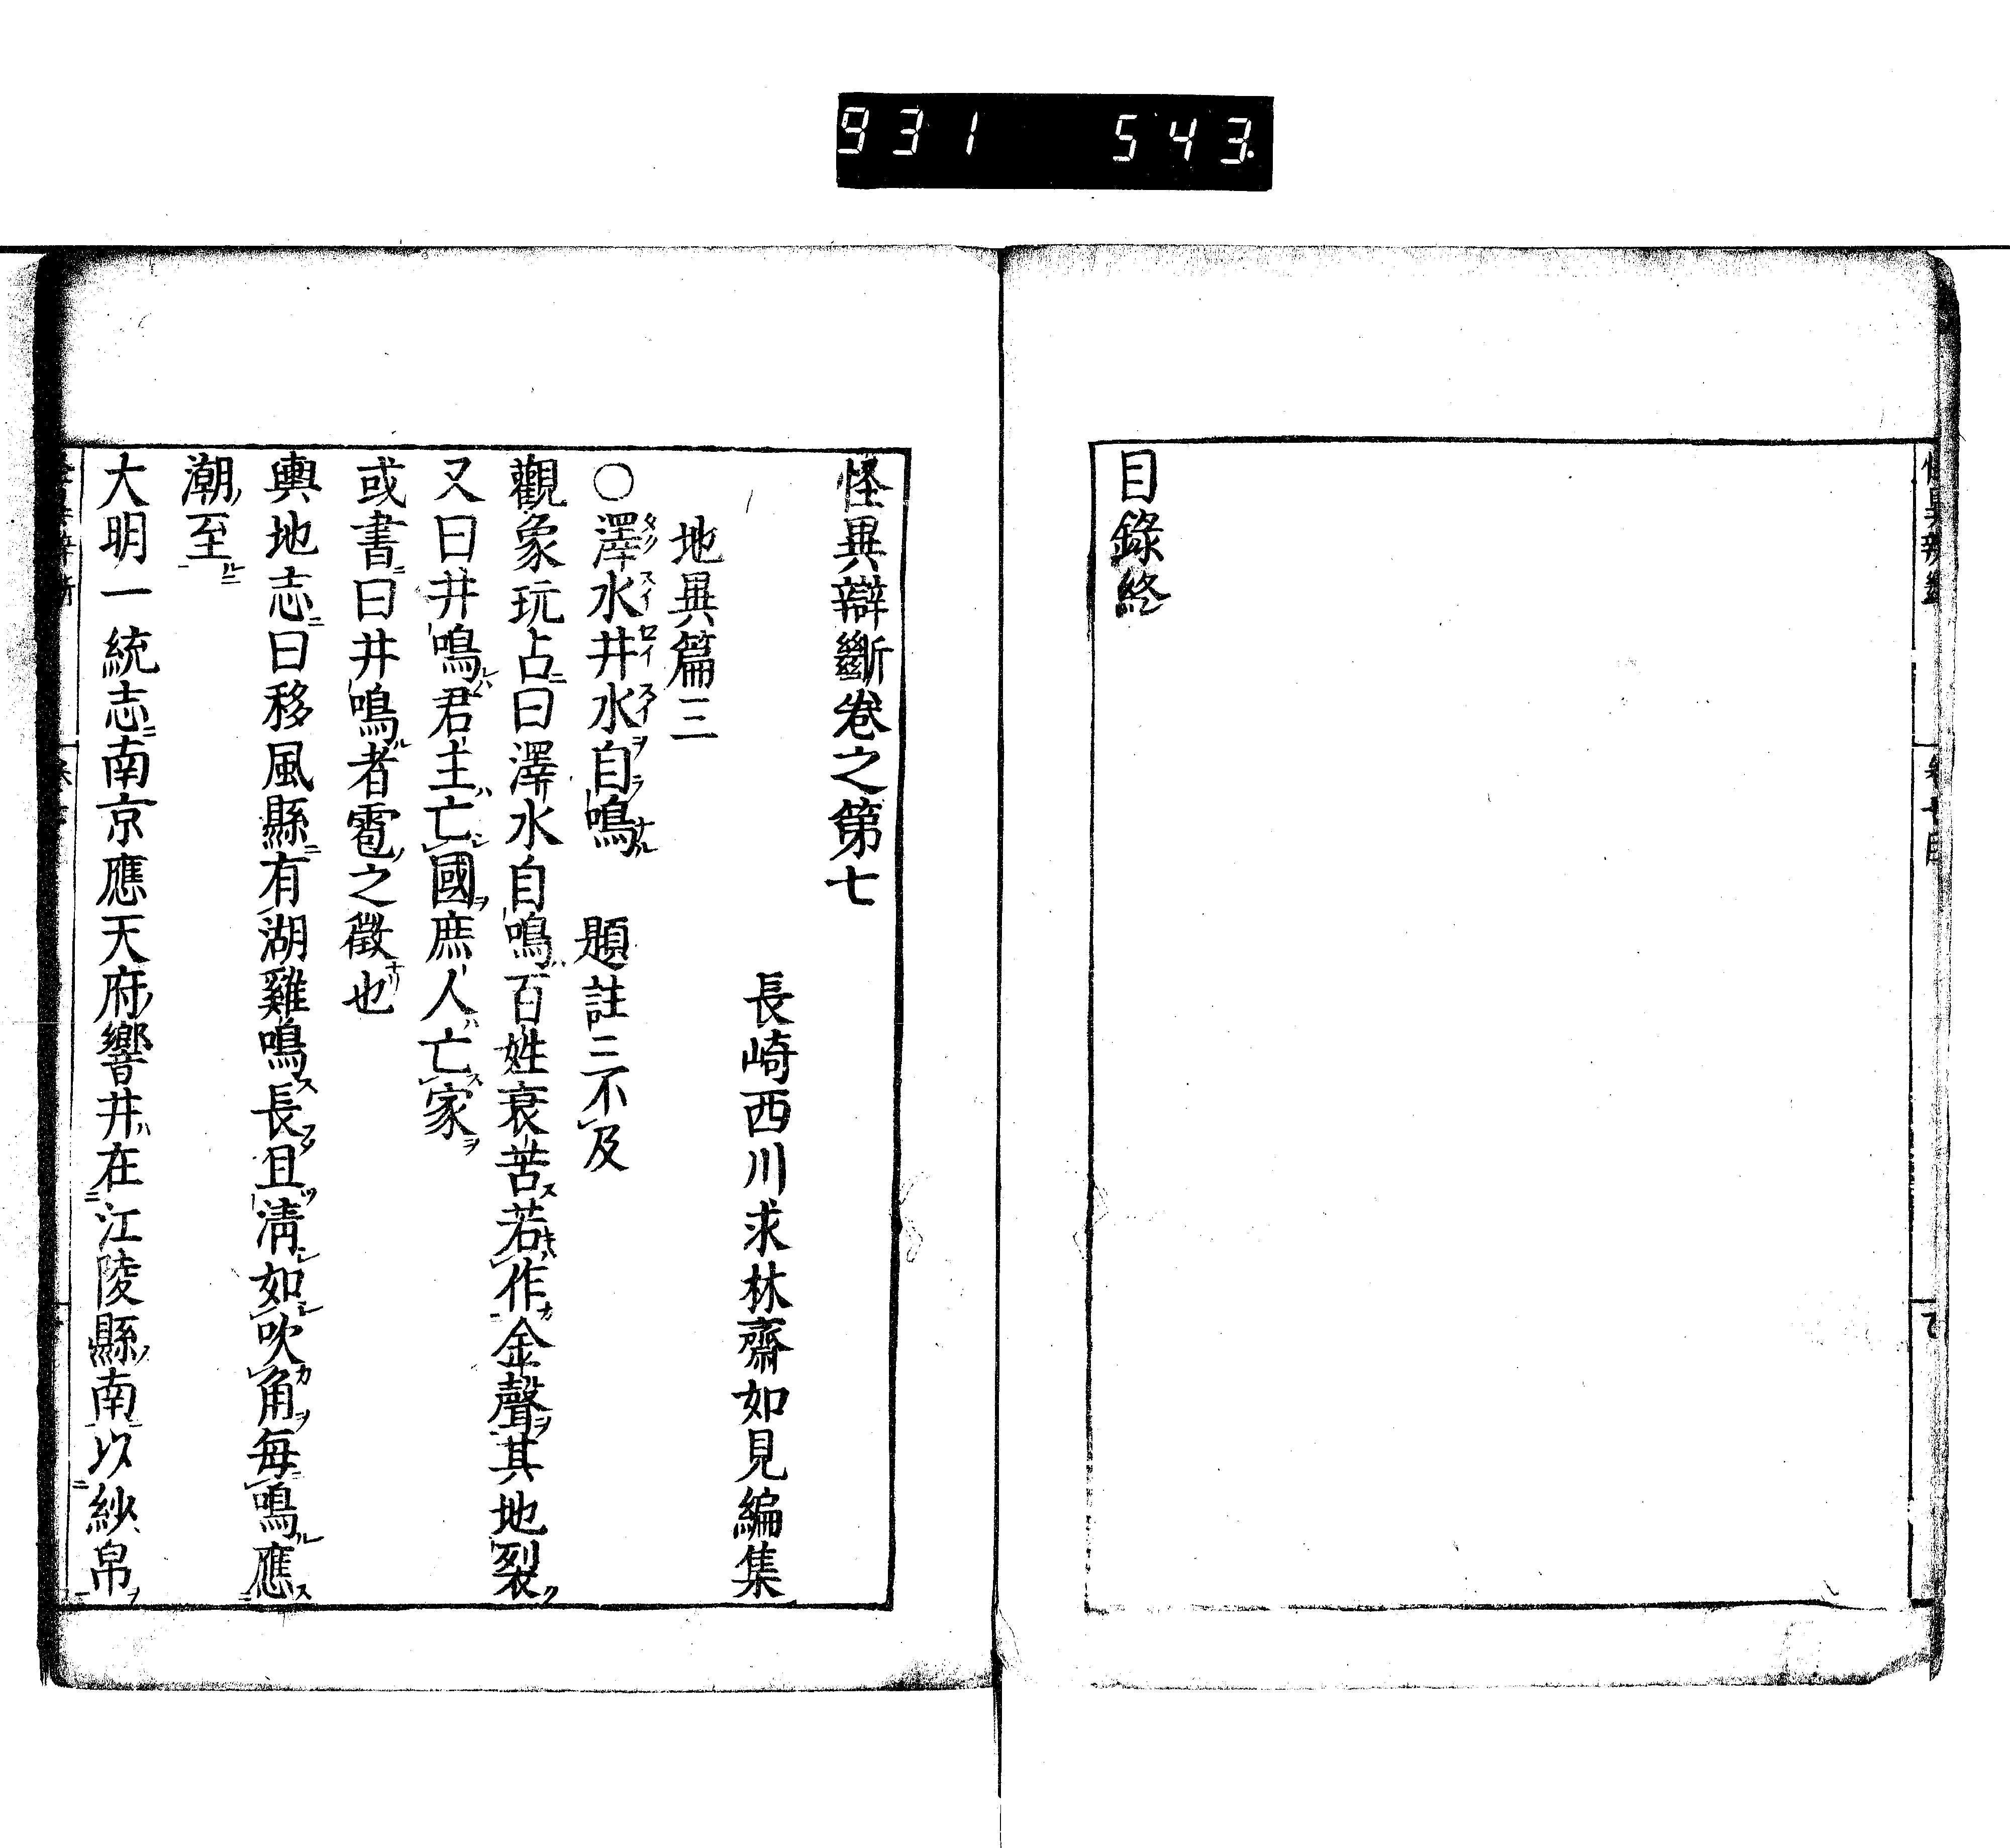 931 543.
目錄終
怪異辯斷卷之第七
長崎西川求林齋如見編集
地異篇三
○澤水井水自鳴　題註ニ不及
觀象玩占曰澤水自鳴百姓衰苦若作金聲其地裂
又曰井鳴君主亡國庶人亡家
或書曰井鳴者雹之徵也
輿地志曰移風縣有湖雞鳴長且淸如吹角每鳴應
潮至
大明一統志南京應天府響井在江陵縣南以紗帛